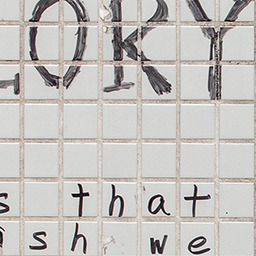 ORY
s that
ish we